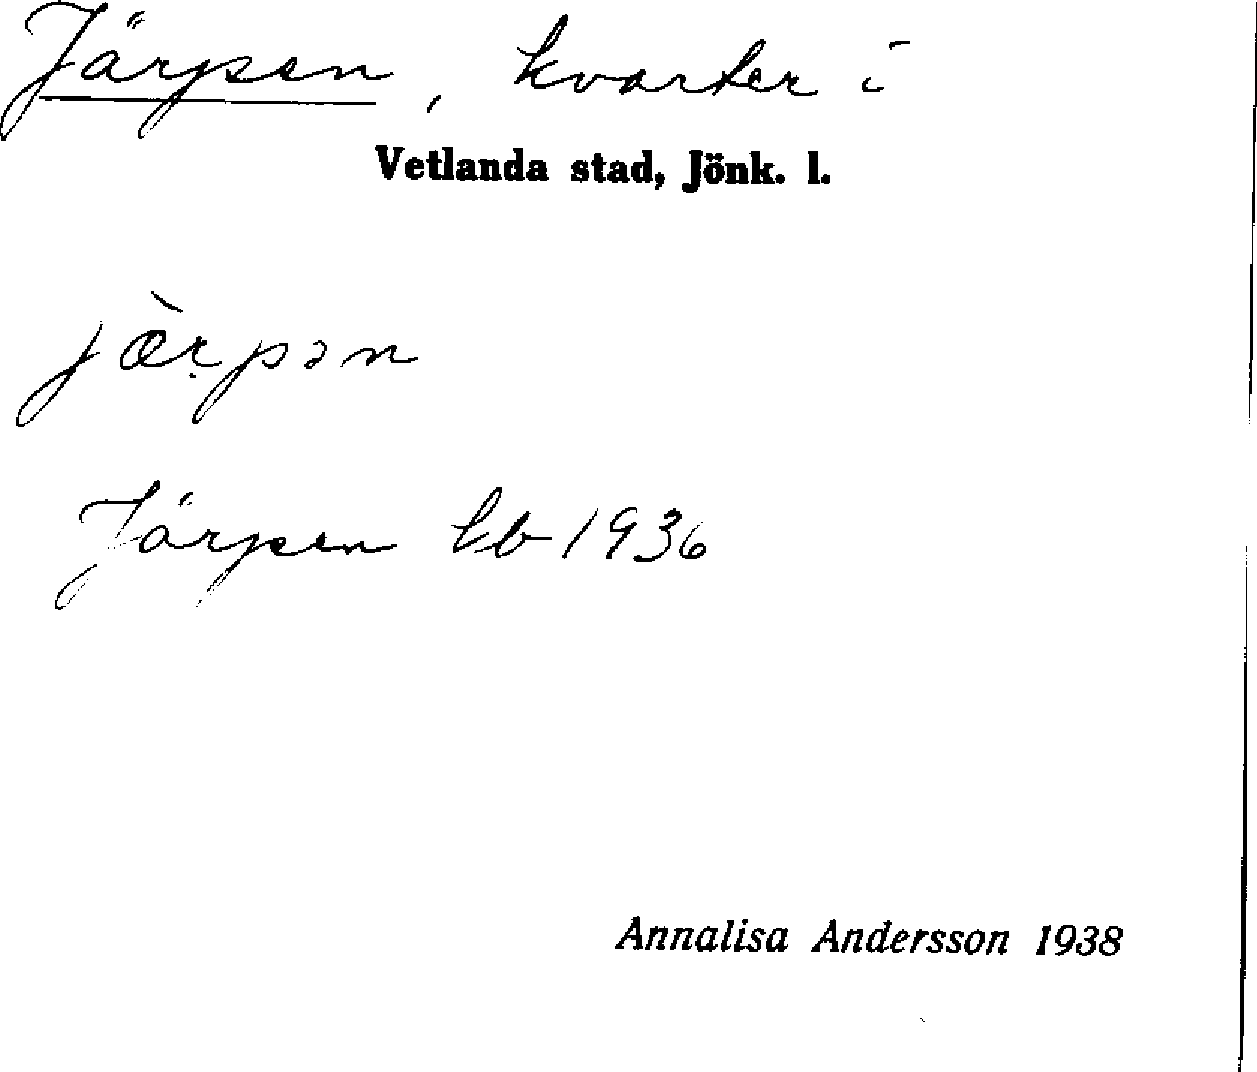 Järpen, kvarter i
Vetlanda stad, Jönk. l.
jæ̀r̤pən
Järpen Eb 1936
Annalisa Andersson 1938